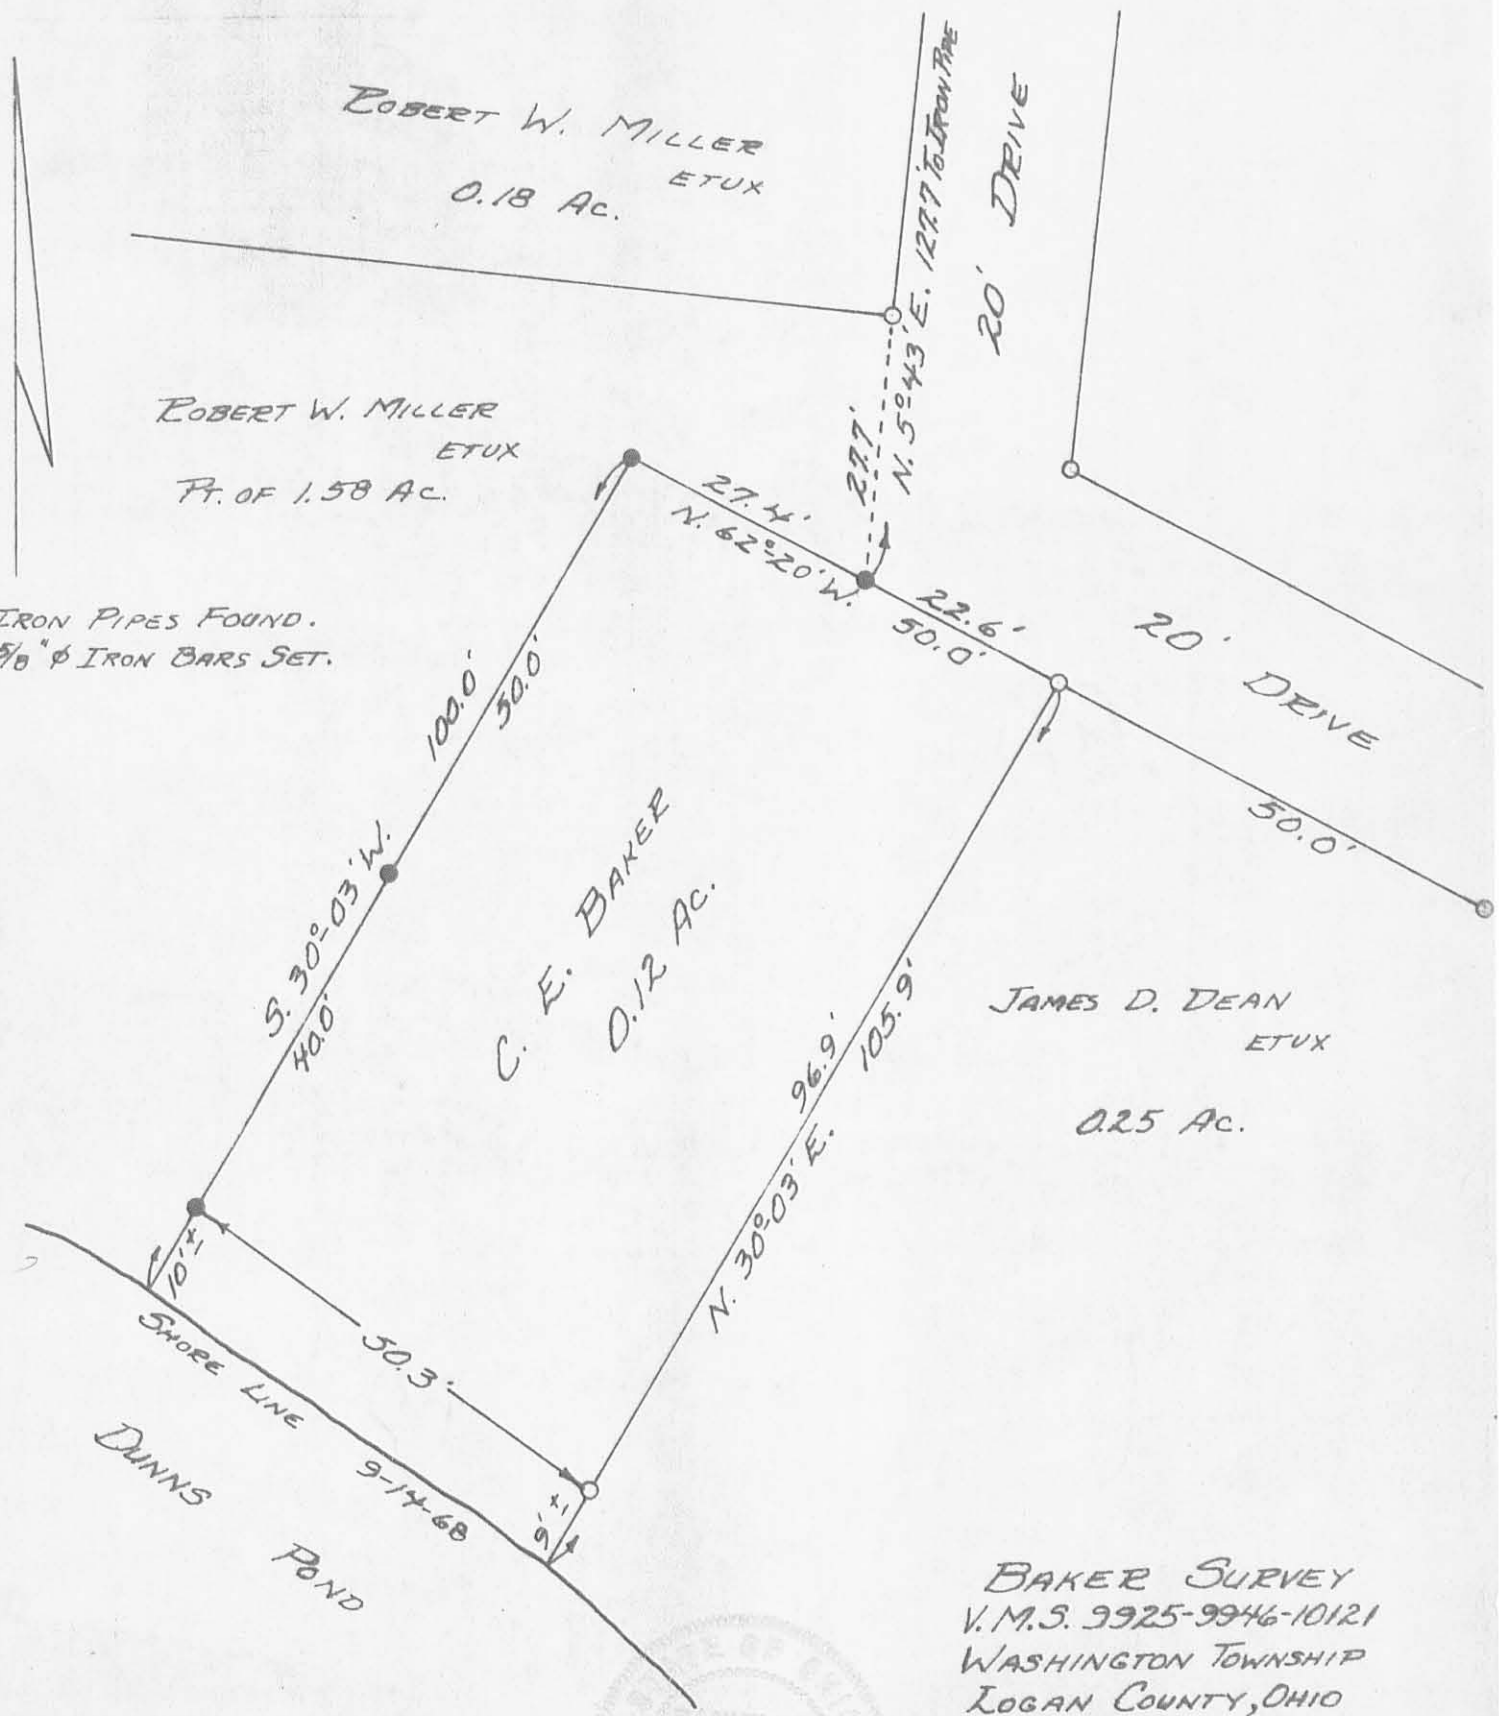 ROBERT W. MILLER
ETUX
0.18 Ac.
N. 5°-43' E. 127.7' To IRON PIPE
20' DRIVE
27.7'
ROBERT W. MILLER
ETUX
PT. OF 1.58 AC.
27.4'
N. 62°-20' W.
22.6'
50.0'
20' DRIVE
50.0'
IRON PIPES FOUND.
5/8" φ IRON BARS SET.
100.0'
50.0'
S. 30°-03' W.
40.0'
C. E. BAKER
0.12 Ac.
96.9'
105.9'
N. 30°-03' E.
JAMES D. DEAN
ETUX
0.25 Ac.
10'±
50.3'
9'±
SHORE LINE 9-14-68
DUNNS POND
BAKER SURVEY
V.M.S. 9925-9946-10121
WASHINGTON TOWNSHIP
LOGAN COUNTY, OHIO